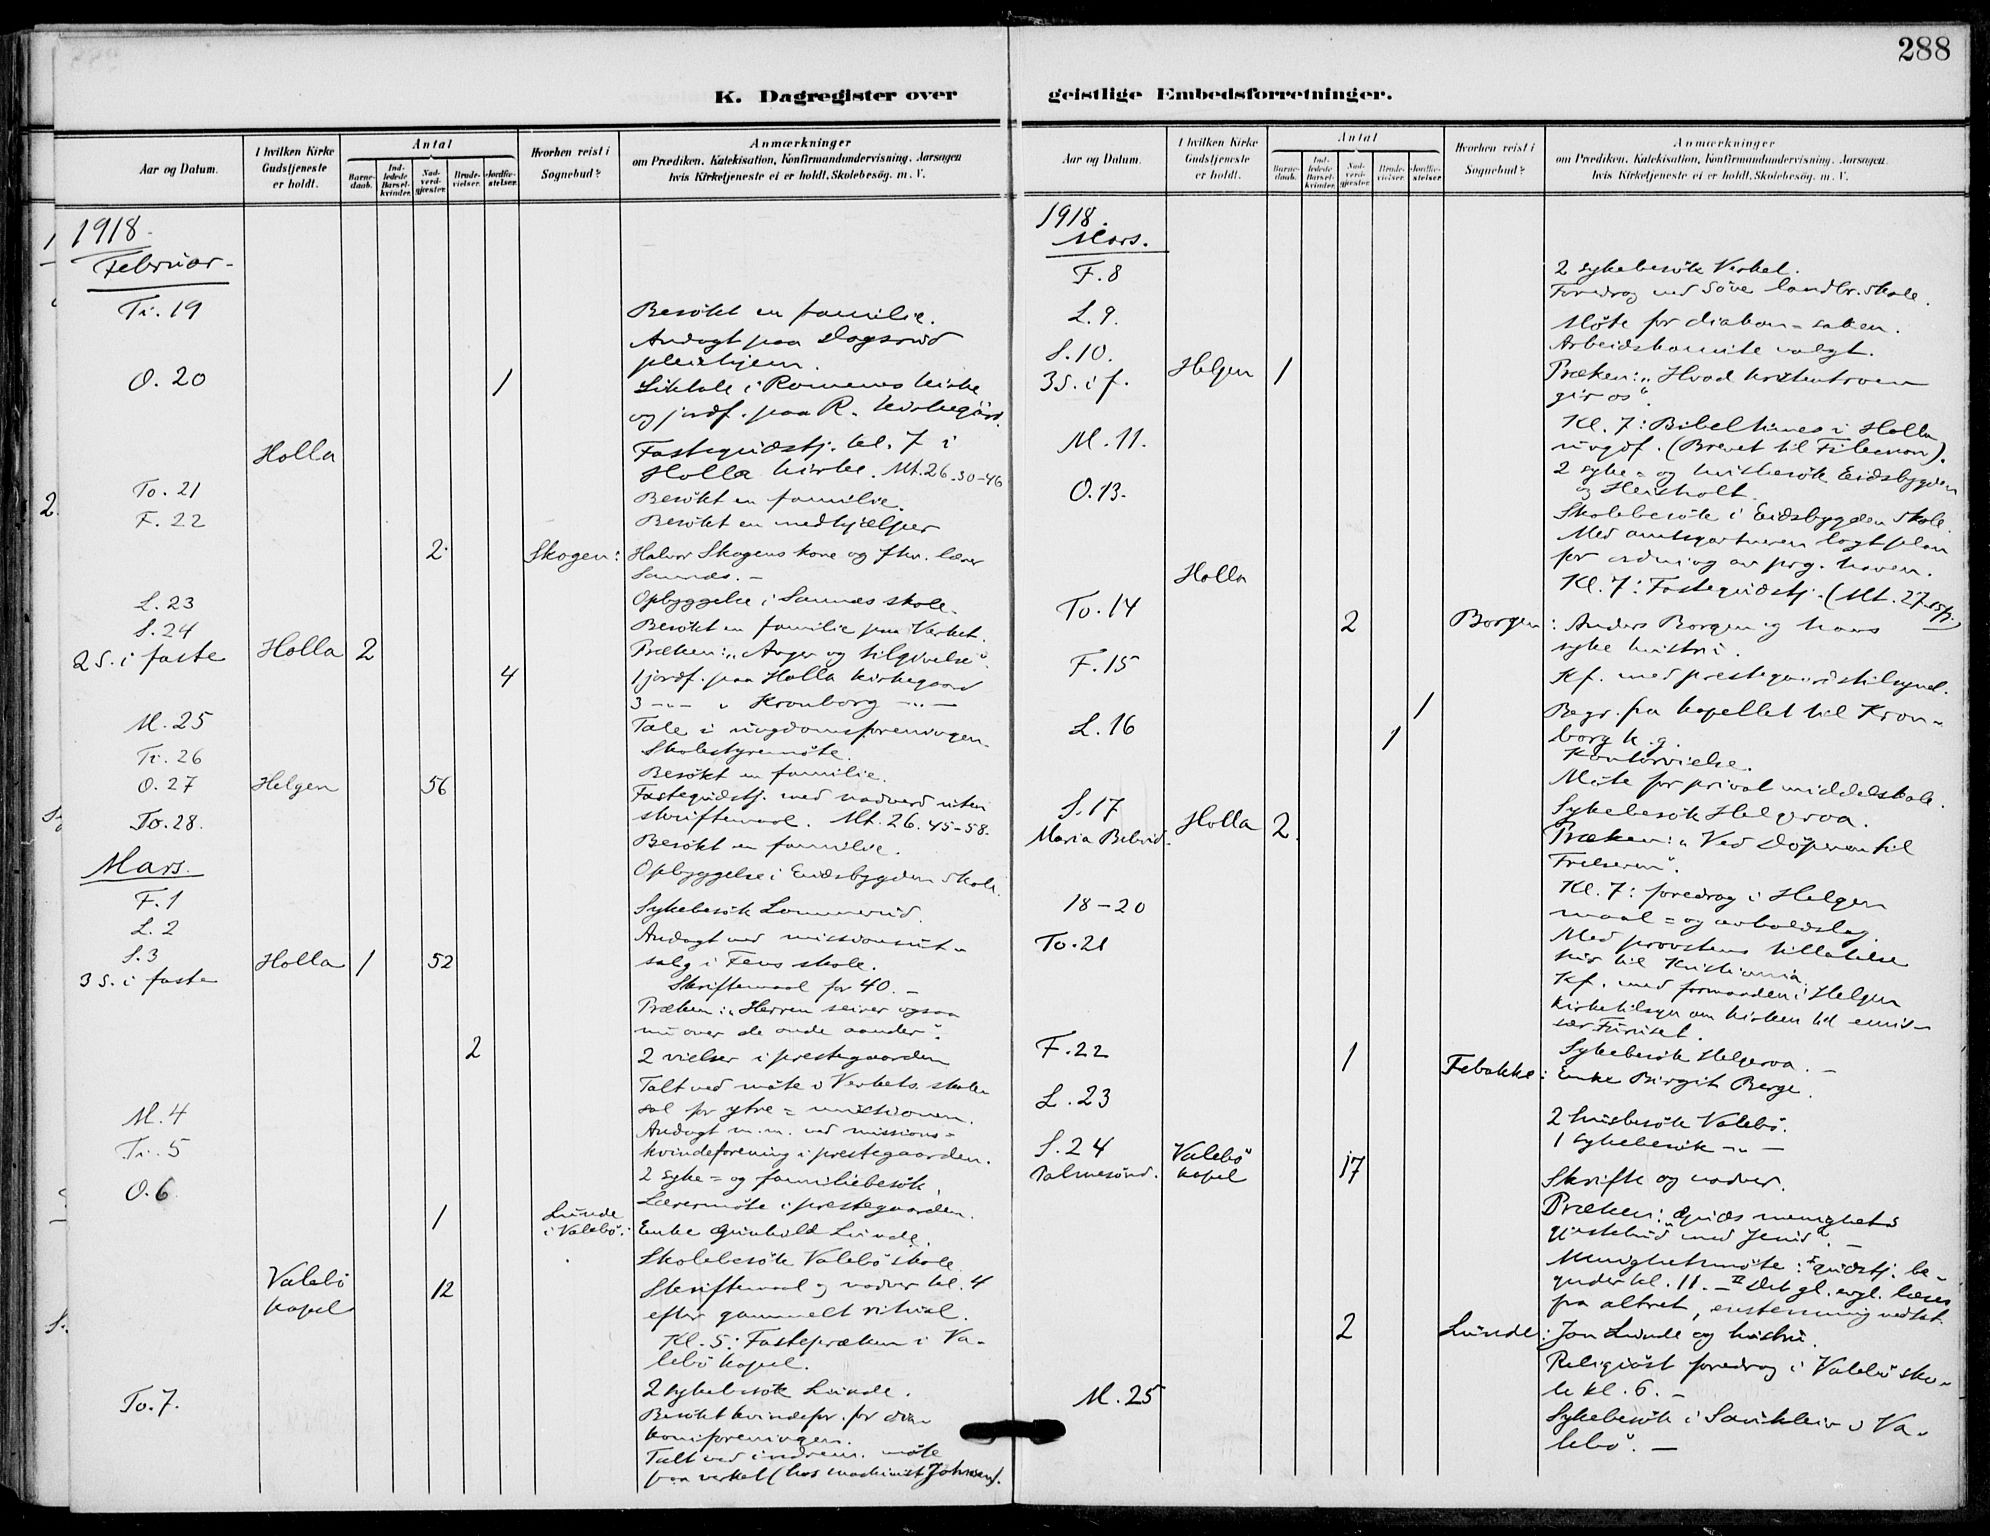 288
K. Dagregister over
Aar og Datum.
I hvilken Kirke Gudstjeneste er holdt.
Antal
Barne-daab.
Ind-ledede Barsel-kvinder.
Nad-verd-gjæster.
Brude-vielser.
Jordfæ-stelser.
Hvorhen reist i Sognebud?
Anmærkninger
om Prædiken, Katekisation, Konfirmandundervisning, Aarsagen
hvis Kirketjeneste ei er holdt, Skolebesøg. m. V.
1918.
Februar.
Ti. 19
Besökt en familie.
Andagt paa Dagsrud
pleiehjem.
O. 20 1 Liktale i Romenes kirke
og jordf. paa R. kirkegård.
Holla Fastegudstj. kl. 7 i
Holla kirke. Mt. 26.30-46
To. 21 Besökt en familie.
F. 22 Besökt en medhjælper
2 Skogen: Halvor Skogens kone og fhv. lærer
Sannes. -
L. 23 Opbyggelse i Sannes skole.
S. 24 Besökt en familie paa Verket.
2 S. i faste Holla 2 Præken: "Anger og tilgivelse".
4 1 jordf. paa Holla kirkegaard
3 -"- " Kronborg -"-
M. 25 Tale i ungdomsforeningen.
Ti. 26 Skolestyremöte.
O. 27 Helgen 56 Besökt en familie.
Fastegudstj. med nadverd uten
To. 28. skriftemaal. Mt. 26.45-58.
Besökt en familie.
Mars.
Opbyggelse i Eidsbygden skole.
F. 1
L. 2 Sykebesök Lonnerud.
S. 3 Andagt ved missionsut-
3 S. i faste Holla 1 52 salg i Fens skole.
Skriftemaal for 40. -
Præken: "Herren seirer ogsaa
nu over de onde aander".
2 2 vielser i prestegaarden
Talt ved möte i Verkets skole
sal for ytre=missionen.
M. 4 Andagt m.m. ved missions=
Ti. 5 kvindeforening i prestegaarden.
O. 6 2 syke= og familiebesök.
Lærermöte i prestegaarden.
1 Lunde i Valebö: Enke Gunhild Lunde.
Skolebesök Valebö skole
Valebö kapel 12 Skriftemaal og nadver kl. 4
efter gammelt ritual.
Kl. 5: Fastepræken i Va-
lebö kapel.
To. 7. 2 sykebesök Lunde.
Besökt kvindefor. for dia-
koniforeningen.
Talt ved indrem. möte
paa verket (hos maskinist Johnsen).
geistlige Embedsforretninger.
Aar og Datum.
I hvilken Kirke Gudstjeneste er holdt.
Antal
Barne-daab.
Ind-ledede Barsel-kvinder.
Nad-verd-gjæster.
Brude-vielser.
Jordfæ-stelser.
Hvorhen reist i Sognebud?
Anmærkninger
om Prædiken, Katekisation, Konfirmandundervisning, Aarsagen
hvis Kirketjeneste ei er holdt, Skolebesøg. m. V.
1918.
Mars.
F. 8 2 sykebesök Verket.
Foredrag ved Söve landbr. skole.
L. 9. Möte for diakon=saken.
S. 10. Arbeidskomite valgt.
3 S. i f. Helgen 1 Præken: "Hvad kristentroen
gir os".
M. 11. Kl. 7: Bibeltimes i Holla
ungdf. (Brevet til Filemon).
O. 13. 2 syke= og husbesök Eidsbygden
og Heisholt.
Skolebesök i Eidsbygden skole.
Med amtsgartneren lagt plan
for ordning av prg. haven.
Holla Kl. 7: Fastegudstj. (Mt. 27
To. 14 2 Borgen: Anders Borgen og hans
syke hustru.
F. 15 Kf. med prestegaardstilsynet.
1 Begr. fra kapellet til Kron-
L. 16 borg k. g.
1 Kontorvielse.
Möte for privat middelskole.
S. 17 Holla 2. Sykebesök Helgeroa.
Maria Bebud. Præken: "Ved Döperen til
Frelseren".
18-20 Kl. 7: foredrag i Helgen
maal= og avholdslag.
To. 21 Med provstens tillatelse
til Kristiania.
Kf. med formanden i Helgen
kirketilsyn om kirken til emis-
sær Furuset.
F. 22 Sykebesök Helgeroa. -
1 Febakke: Enke Birgit Berge.
L. 23
2 husbesök Valebö.
1 sykebesök -"-
S. 24 Valebö
Palmesönd. kapel 17 Skrifte og nadver.
Præken: Guds menighets
gjestebud med Jesus". -
Menighetsmöte: I gudstj. be-
gynder kl. 11. - II Det gl. evgl. læses
fra altret, enstemmig vedtat.
2 Lunde: Jon Lunde og hustru.
Religiöst foredrag i Valebö sko-
le kl. 6. -
M. 25
Sykebesök i Saukleiv i Va-
lebö. -